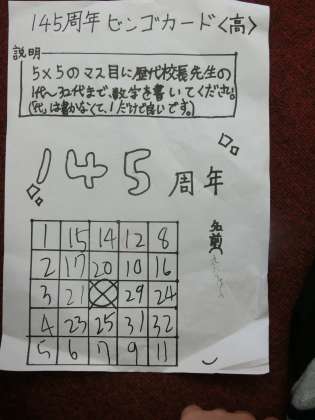 145周年ビンゴカード<高>
説明
5×5のマス目に歴代校長先生の
1代~32代まで、数字を書いてください。
(「代」は書かなくて、1だけで良いです。)
145周年
名前
1 15 14 12 8
2 17 20 10 16
3 21 29 24
4 23 25 31 32
5 6 7 9 11